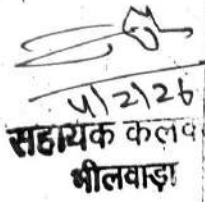 4/2/26
सहायक कलव
भीलवाड़ा